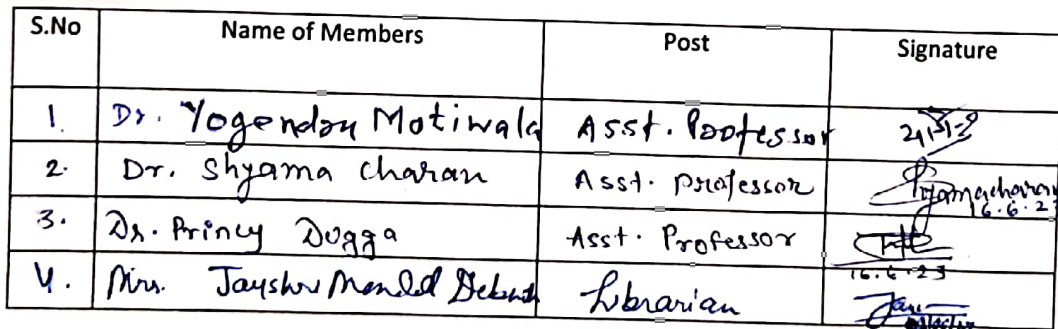 S.No Name of Members Post Signature
1. Dr. Yogendra Motiwala Asst. Professor
2. Dr. Shyama Charan Asst. Professor Shyamacharan
16.6.23
3. Dr. Princy Dugga Asst. Professor
16.6.23
4. Mrs. Jayshri Mandal Debnath Librarian